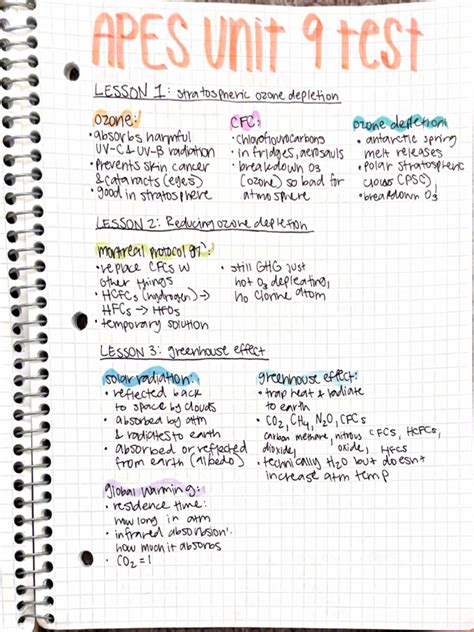 APES Unit 9 test
LESSON 1: stratospheric ozone depletion
ozone:
• absorbs harmful
UV-C & UV-B radiation
• prevents skin cancer
& cataracts (eyes)
• good in stratosphere
CFC:
• chlorofluorocarbons
• in fridges, aerosols
• breakdown O3
(ozone) so bad for
atmosphere
ozone depletion:
• antarctic spring
melt releases
• polar stratospheric
clouds (PSC)
• breakdown O3
LESSON 2: Reducing ozone depletion
montreal protocol
• replace CFCs w
other things
• HCFCs (hydrogen) →
HFCs → HFOs
• temporary solution
• still GHG just
not O3 depleating,
no clorine atom
LESSON 3: greenhouse effect
solar radiation:
• reflected back
to space by clouds
• absorbed by atm
& radiates to earth
• absorbed or reflected
from earth (albedo)
greenhouse effect:
• trap heat & radiate
to earth
• CO2, CH4, N2O, CFCs
carbon methane, nitrous CFCS, HCFCs,
dioxide, oxide, HFCs
• technically H2O but doesnt
increase atm temp
global warming:
• residence time:
how long in atm
• infrared absorbsion:
how much it absorbs
• CO2 = 1